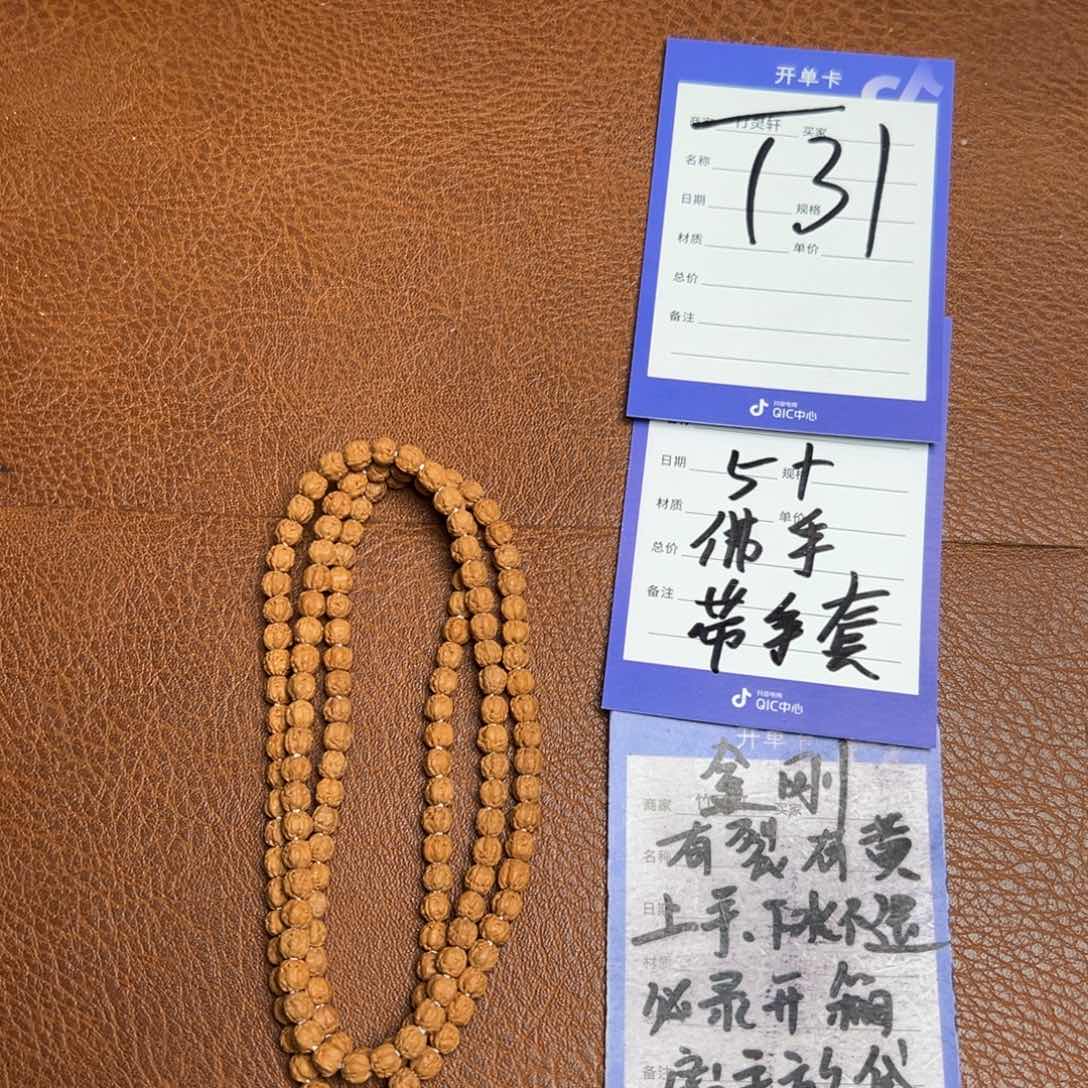 开单卡
商家 竹灵轩 买家
131
名称
日期 规格
材质 单价
总价
备注
抖音电商
QIC中心
日期 规格
5十
材质 单价
佛手
总价
备注
带手套
抖音电商
QIC中心
开单卡
金刚
商家 竹 买家
有裂有黄
名称
上手.下水不退
日期
材质
必录开箱
备注